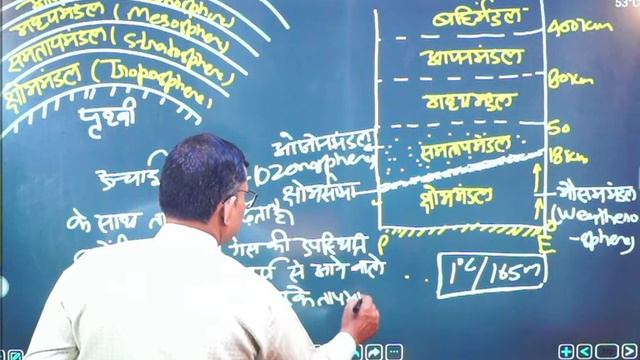 मध्यमंडल (Mesosphere)
समतापमंडल (Stratosphere)
क्षोभमंडल (Troposphere)
पृथ्वी
बहिर्मंडल
400km
आयनमंडल
80km
मध्यमंडल
50
ओजोनमंडल
समतापमंडल
18km
Ozonosphere)
क्षोभसीमा
क्षोभमंडल
मौसममंडल
(Weatheno
-sphere)
के साथ
की उपस्थिति
P
E
से आने वाले
1°C/165m
के तापमा